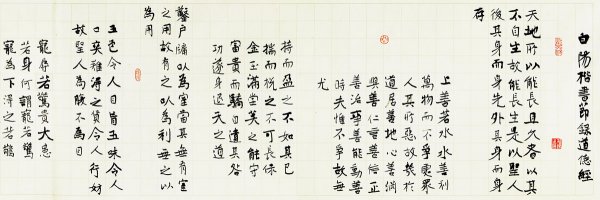 白陽楷書節錄道德經
天地所以能長且久者以其
不自生故能長生是以聖人
後其身而身先外其身而身
存
上善若水水善利
萬物而不爭處眾
人其所惡故幾於
道居善地心善淵
與善仁言善信正
善治事善能動善
時夫惟不爭故無
尤
持而盈之不如其已
揣而梲之不可長保
金玉滿堂莫之能守
富貴而驕自遺其咎
功遂身退天之道
鑿戶牖以為室當其無有室
之用故有之以為利無之以
為用
五色令人目盲五味令人
口爽難得之貨令人行妨
故聖人為腹不為目
寵辱若驚貴大患
若身何謂寵若驚
寵為下得之若驚